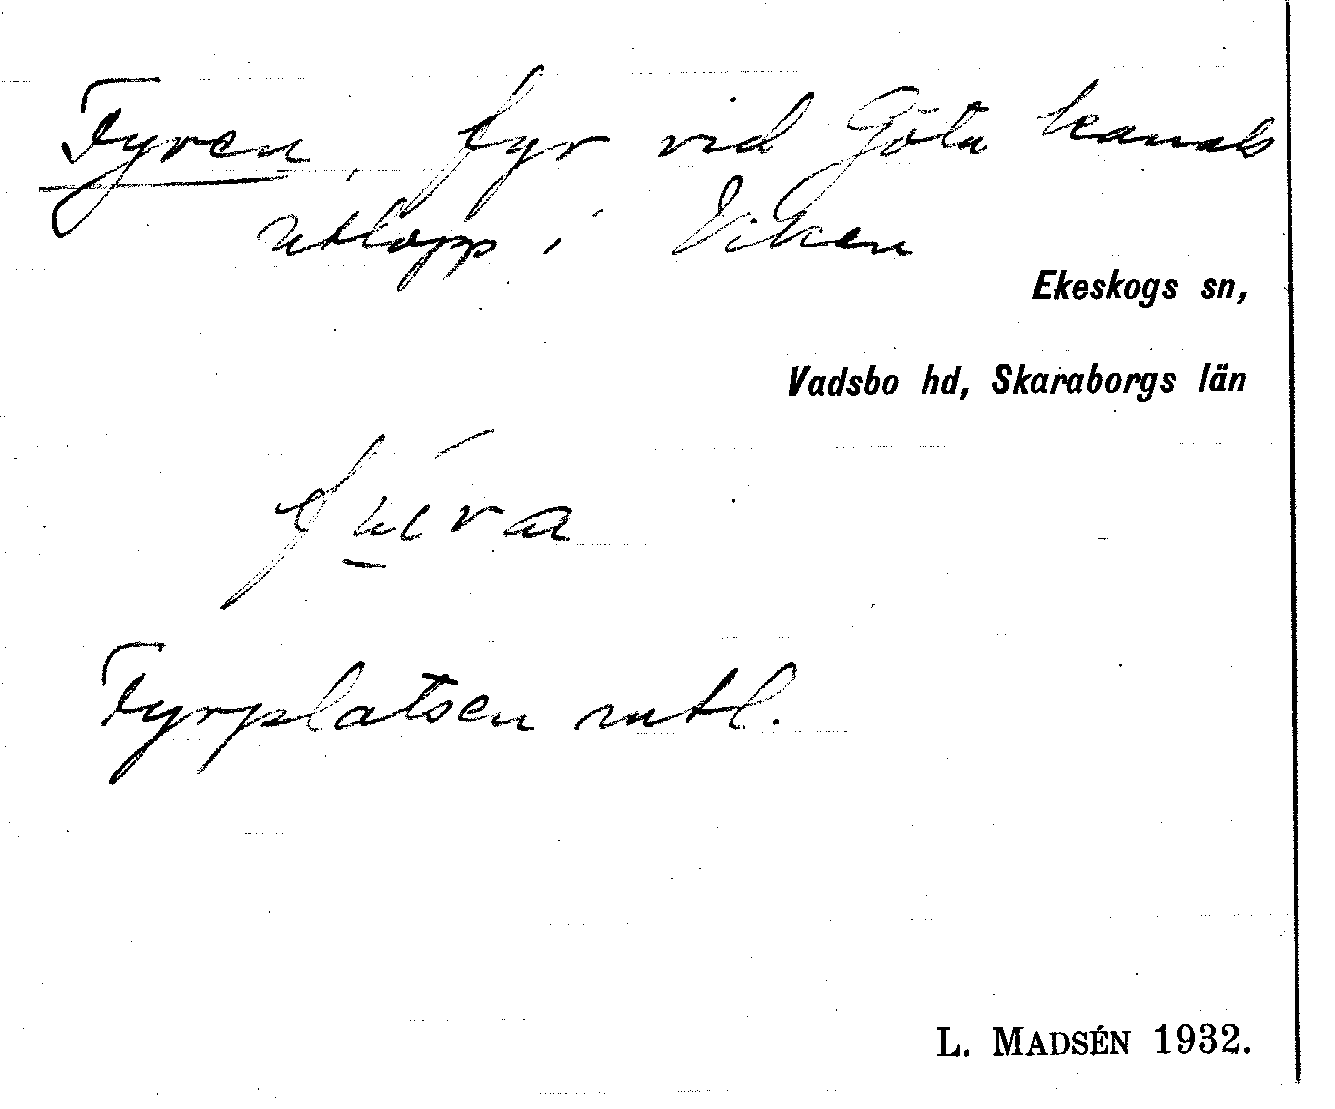 Fyren, fyr vid Göta kanals
utlopp i Viken
Ekeskogs sn,
Vadsbo hd, Skaraborgs län
Fyrplatsen mtl.
L. MADSÉN 1932.